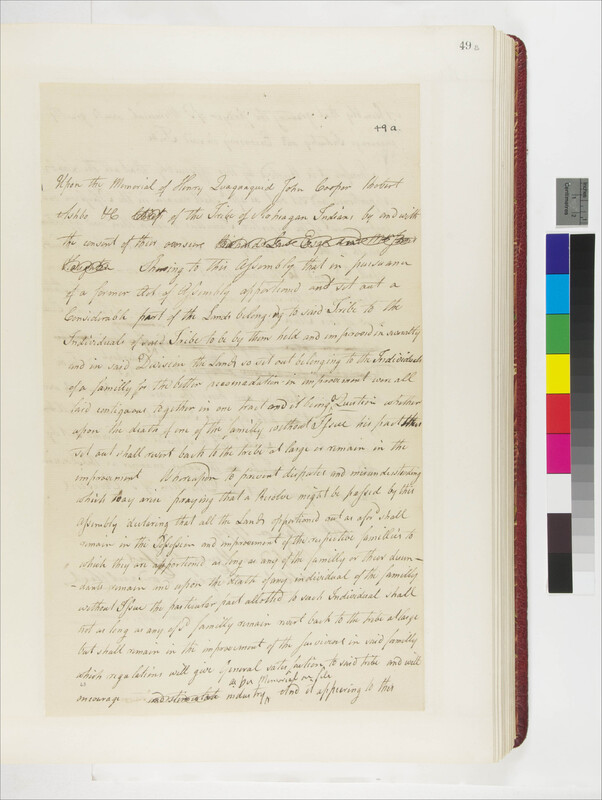 49a
49a.
Upon the Memorial of Henry Quaquaquid John Cooper Robert
Ashbo &C of the Tribe of Moheagan Indians by and with
the consent of their overseers
Shewing to this Assembly that in pursuance
of a former Act of Assembly apportioned and set out a
Considerable part of the Lands belonging to said Tribe to the
Individuals of said Tribe to be by them held and improved in severalty
and in said Division the Lands so set out belonging to the Individuals
of a familly for the better accomadation in improvement were all
laid contiguous together in one tract and it being Question whether
upon the death of one of the familly without Issue his part
set out shall revert back to the tribe at large or remain in the
improvement Wereupon to prevent disputes and misunderstanding
which may arise praying that a Resolve might be passed by this
Assembly declaring that all the Lands apportioned out as afsd shall
remain in the Possession and improvement of the respective famillies to
which they are apportioned as long as any of the familly or their decen-
-dants remain and upon the death of any individual of the familly
without Issue the particular part allotted to such Individual shall
not as long as any of sd familly remain revert back to the tribe at large
but shall remain in the improvement of the survivors in said familly
which regulations will give General satisfaction to said tribe and will
as per Memorial on file
encourage and stimulate industry And it appearing to this
Centimetres
Inches